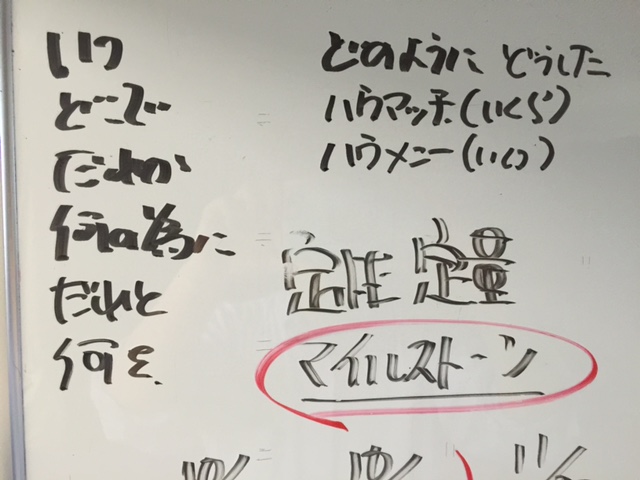 いつ
どこで
だれが
何の為に
だれと
何を
どのように どうした
ハウマッチ(いくら)
ハウメニー(いくつ)
定性 定量
マイルストーン
10/ 10/ 11/